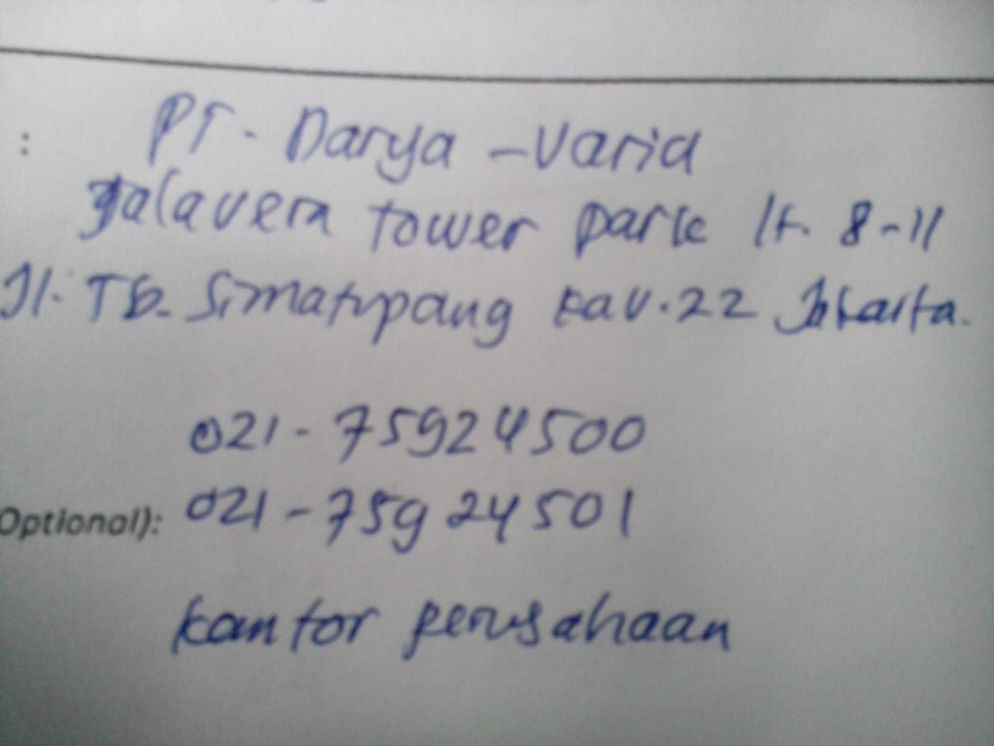 : PT - Darya - Varia
Talavera tower park lt. 8-11
Jl. TB. Simatupang kav.22 Jakarta.
021-75924500
Optional): 021-75924501
kantor perusahaan